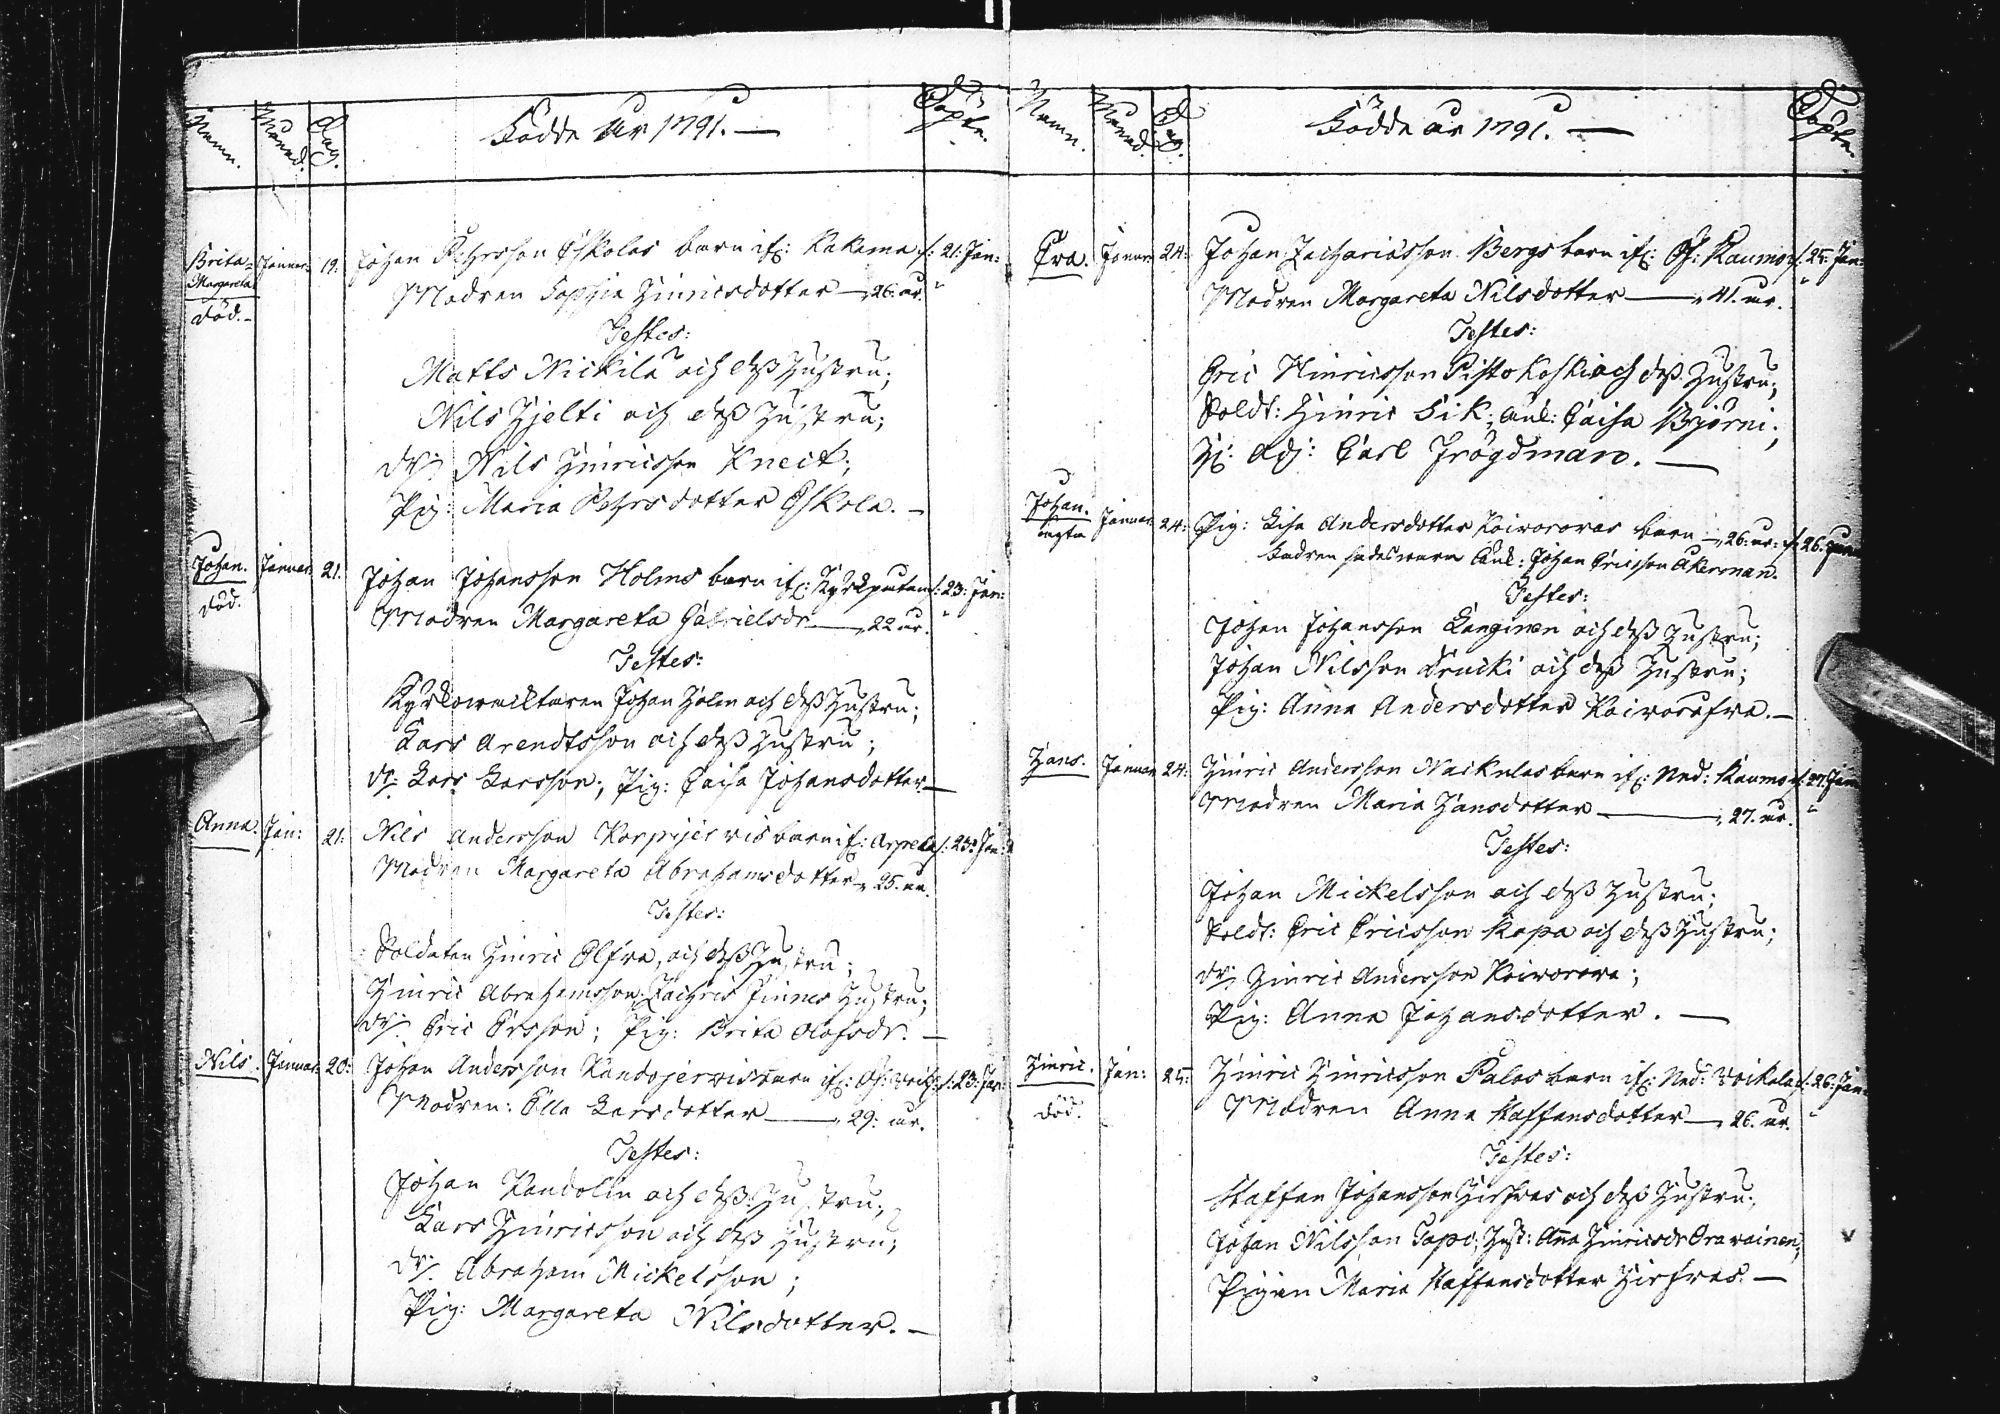 Namn. Månad. Dag. Födde År 1791. — Döpte.
Brita= Januar: 19. Johan Pehrsson Eskolas barn if: Kakama f: 21. Jan:
Margareta Modren Sophia Hinricsdotter — 26. år. "
död. –
Testes:
Matts Nickilä och dess Hustru;
Nils Hjelti och dess Hustru;
Dr: Nils Hinricsson Kneck;
Pig: Maria Pehrsdotter Eskola. –
Johan. Januar: 21. Johan Johansson Holms barn if: Kyrckputem f: 23: Jan:
död. Modren Margareta Gabrielsdr — 22 år. "
Testes:
Kyrckowecktaren Johan Holm och dess Hustru;
Lars Arendtsson och dess Hustru;
Dr: Lars Larsson; Pig: Caisa Johansdotter. —
Anna. Jan: 21: Nils Andersson Karpijerwis barn if: Arpela f: 23: Jan:
Modren Margareta Abrahamsdotter — 25. år.
Testes:
Soldaten Hinric Elfra, och dess Hustru;
Hinric Abrahamsson Zachris Pinnes Hustru;
Dr: Eric Ersson; Pig: Brita Olofsdr. —
Nils. Januar: 20: Johan Andersson Kandojerwis barn if: Öf: Woick: f: 23: Jan:
Modren: Ella Larsdotter — 29: år.
Testes:
Johan Kandolin och dess Hustru;
Lars Hinricsson och dess Hustru;
Dr: Abraham Mickelsson;
Pig: Margareta Nilsdotter. —
Namn. Månad. Dag. Födde år 1791. — Döpte.
Eva. Januar: 24: Johan Zachariasson Bergs barn if: Öf: Raumo f: 25: Jan:
Modren Margareta Nilsdotter — 41. år. "
Testes:
Eric Hinricsson Pistokoski och dess Hustru;
Soldt: Hinric Sik; Enk: Caisa Björni;
H: Adj: Carl Frögdman. —
Johan. Januar: 24: Pig: Lisa Andersdotter Koiworovas barn — 26. år: f: 26. Jan:
oägta Fadren sades wara Enk: Johan Ericsson Åkerman.
Testes:
Johan Johansson Langinen och dess Hustru;
Johan Nilsson Krucki och dess Hustru;
Pig: Anna Andersdotter Koiworofwa. —
Hans. Januar: 24: Hinric Andersson Nackulas barn if: Ned: Raumo f: 27. Jan:
Modren Maria Hansdotter — 27. år. "
Testes:
Johan Mickelsson och dess Hustru;
Soldt: Eric Ericsson Kopa och dess Hustru;
Dr: Hinric Andersson Koiworova;
Pig: Anna Johansdotter. —
Hinric. Jan: 25: Hinric Hinricsson Palos barn if: Ned: Woikala f: 26: Jan:
död. Modren Anna Staffansdotter — 26. år. "
Testes:
Staffan Johansson Hirfwas och dess Hustru;
Johan Nilsson Tapo; Hust: Anna Hinricsdr Orawainen;
Pigan Maria Staffansdotter Hirfwas. —